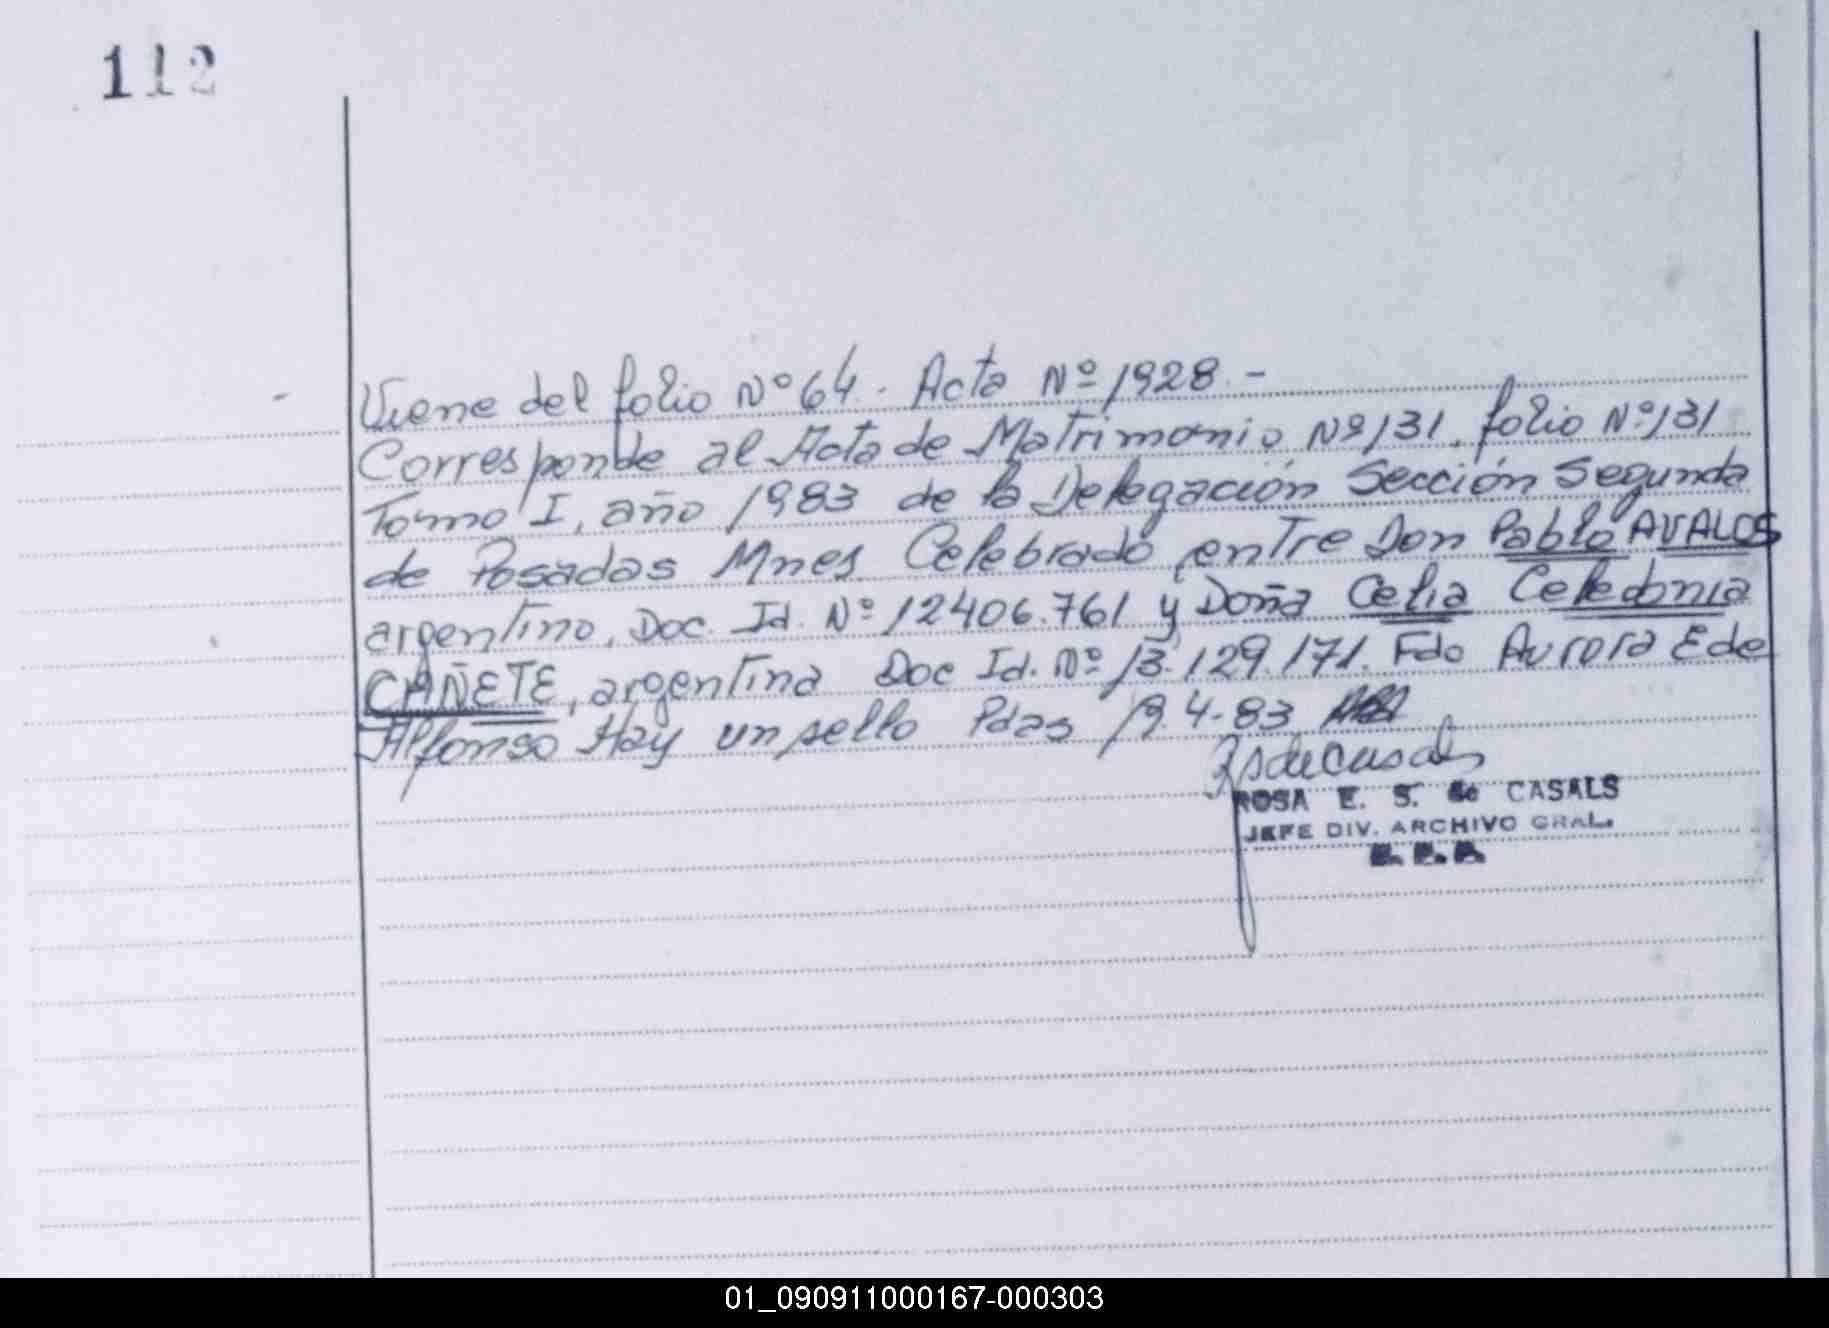 112
Viene del folio Nº 64. Acta Nº 1928.-
Corresponde al Acta de Matrimonio Nº 131. folio Nº 131
Tomo I, año 1983 de la Delegación Sección Segunda
de Posadas Mnes Celebrado entre Don Pablo AVALOS
argentino, Doc. Id. Nº 12406.761 y Doña Celia Celedonia
CAÑETE, argentina Doc Id. Nº 13.129.171. Fdo Aurora E de
Alfonso Hay un sello Pdas 19.4-83
ROSA E. S. de CASALS
JEFE DIV. ARCHIVO GRAL.
01_090911000167-000303